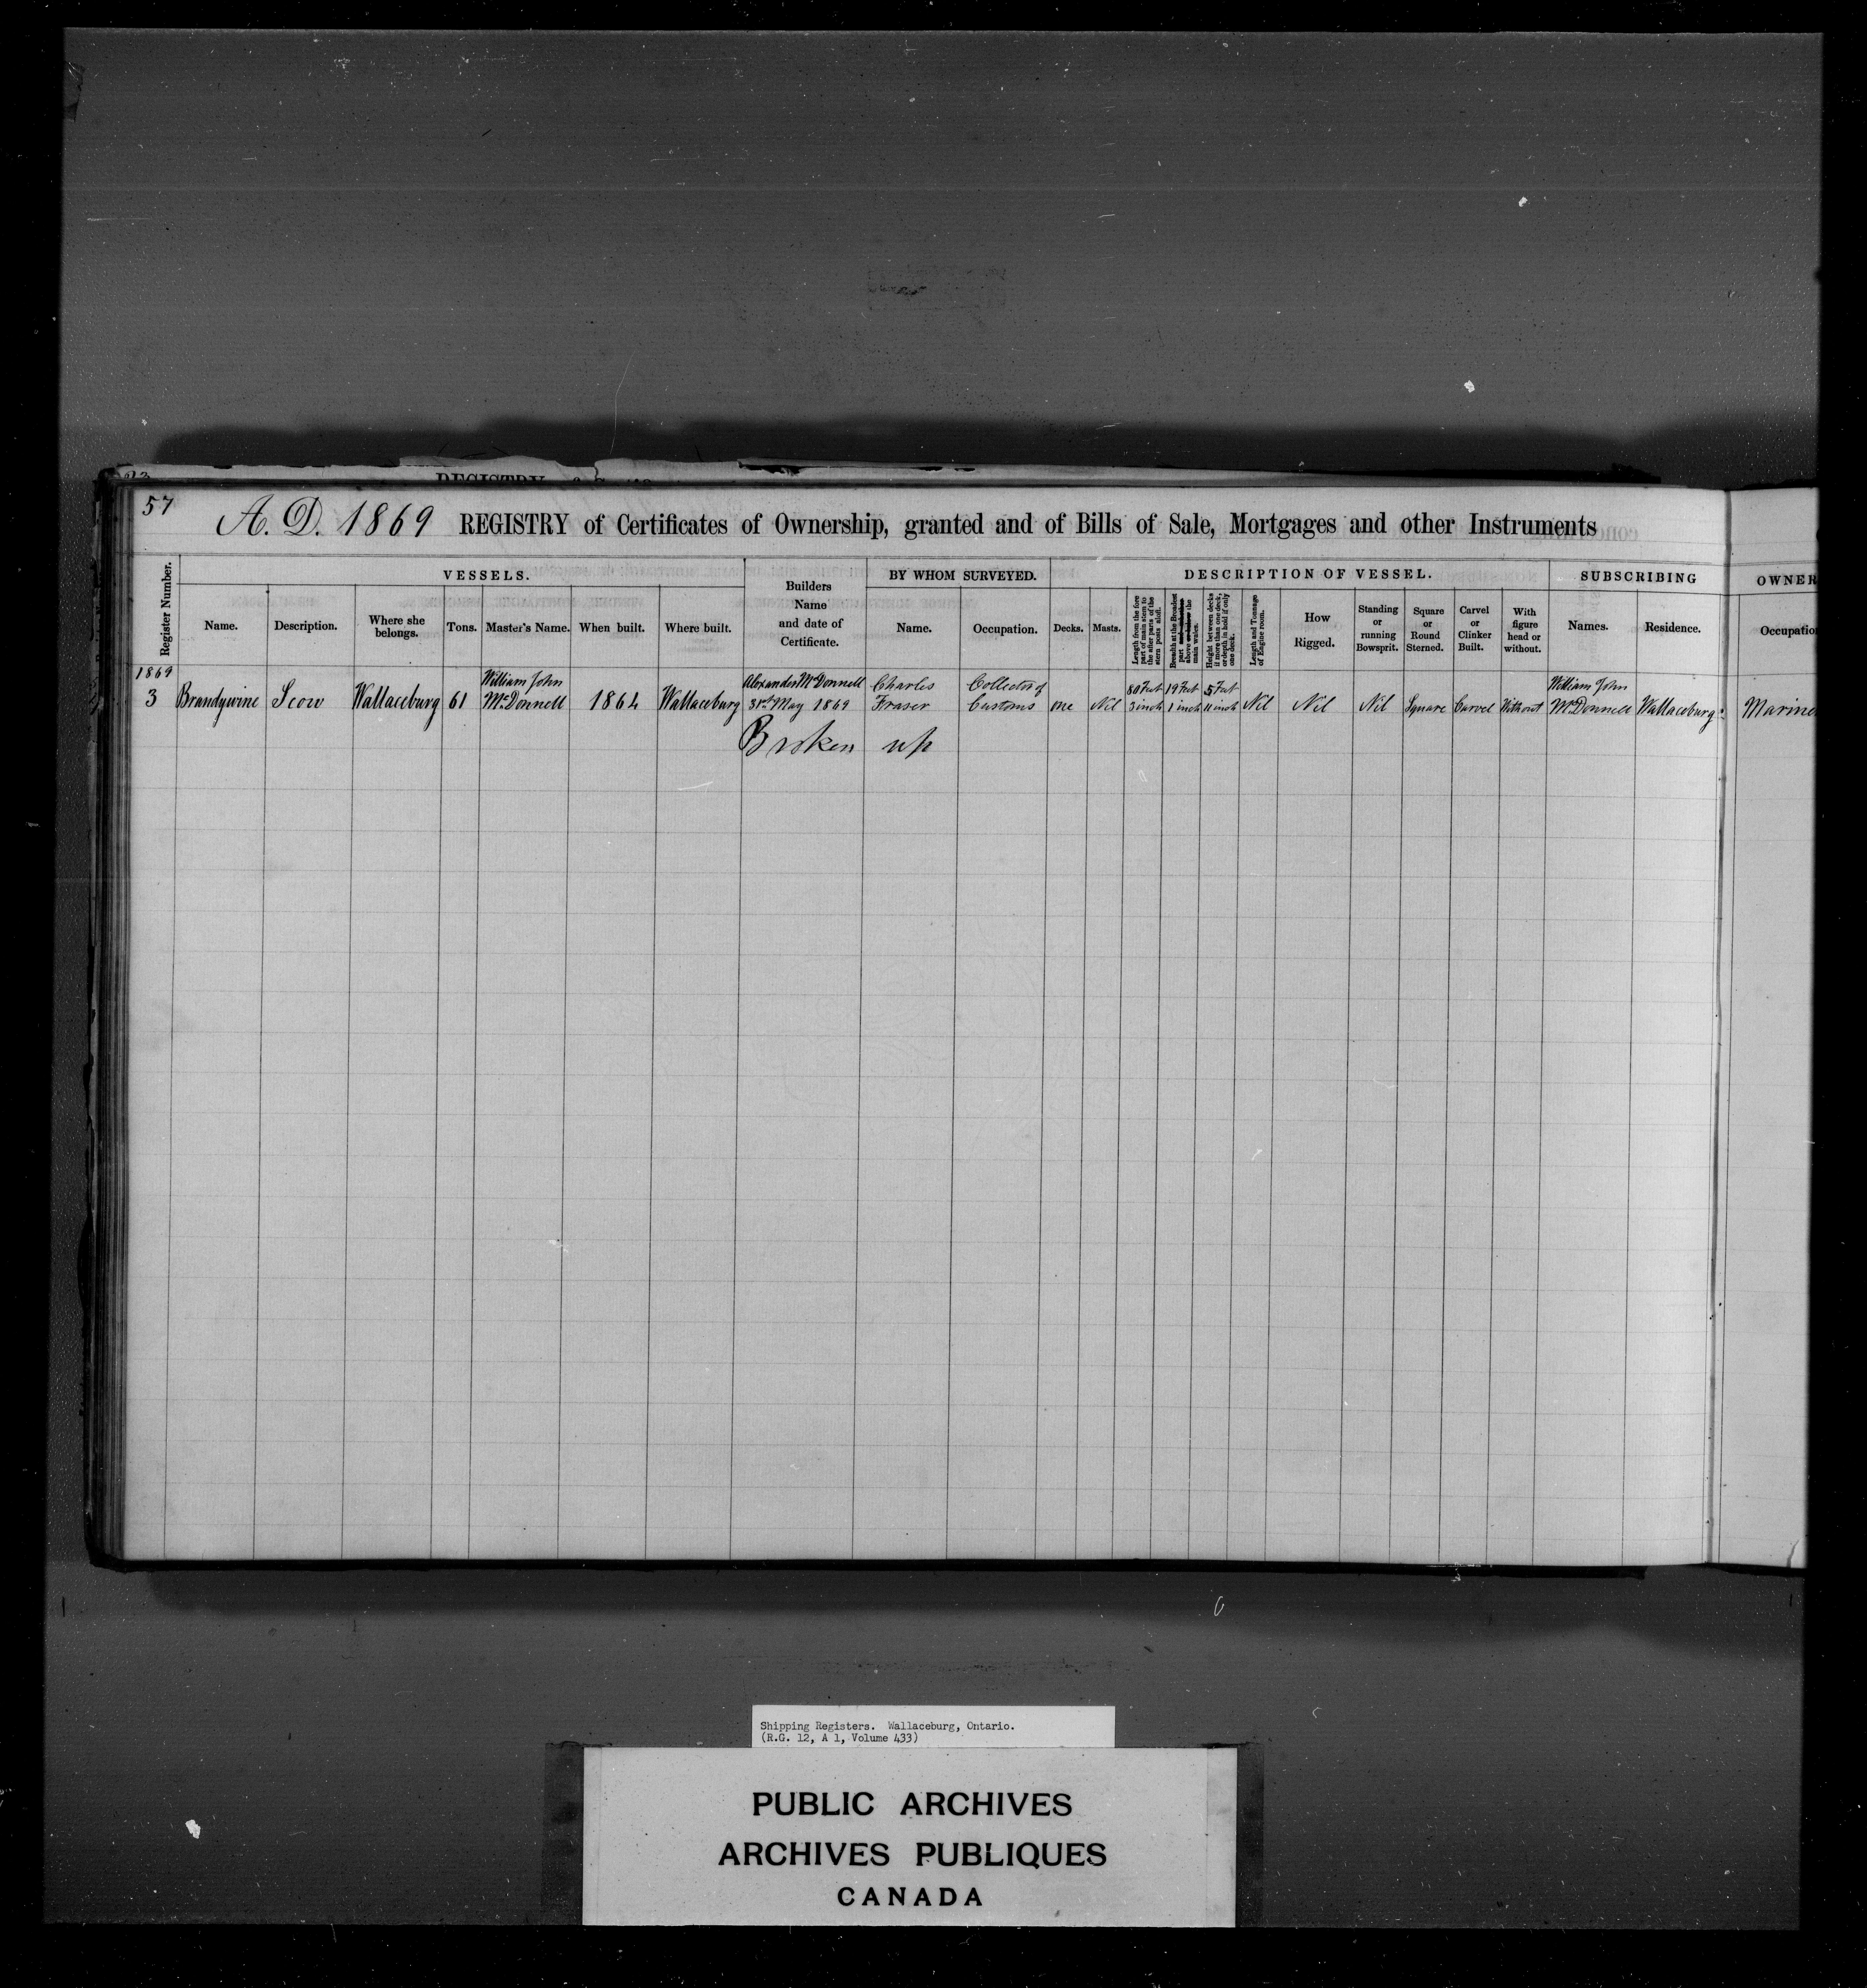 57
A. D. 1869 REGISTRY of Certificates of Ownership, granted and of Bills of Sale, Mortgages and other Instruments
Register Number.
VESSELS.
Name.
Description.
Where she belongs.
Tons.
Master's Name.
When built.
Where built.
Builders Name and date of Certificate.
BY WHOM SURVEYED.
Name.
Occupation.
DESCRIPTION OF VESSEL.
Decks.
Masts.
Length from the fore part of main stem to the after parts of the stern posts aloft.
Breadth at the Broadest part above the main wales.
Height between decks if more than one deck, or depth in hold if only one deck.
Length and Tonnage of Engine room.
How Rigged.
Standing or running Bowsprit.
Square or Round Sterned.
Carvel or Clinker Built.
With figure head or without.
SUBSCRIBING
Names.
Residence.
OWNER
Occupation
1869
3 Brandywine Scow Wallaceburg 61 William John McDonnell 1864 Wallaceburg Alexander McDonnell 31st May 1869 Charles Fraser Collector of Customs one Nil 80 Feet 3 inch 19 Feet 1 inch 5 Feet 11 inch Nil Nil Nil Square Carvel Without William John McDonnell Wallaceburg Marine
Broken up
Shipping Registers. Wallaceburg, Ontario.
(R.G. 12, A 1, Volume 433)
PUBLIC ARCHIVES
ARCHIVES PUBLIQUES
CANADA